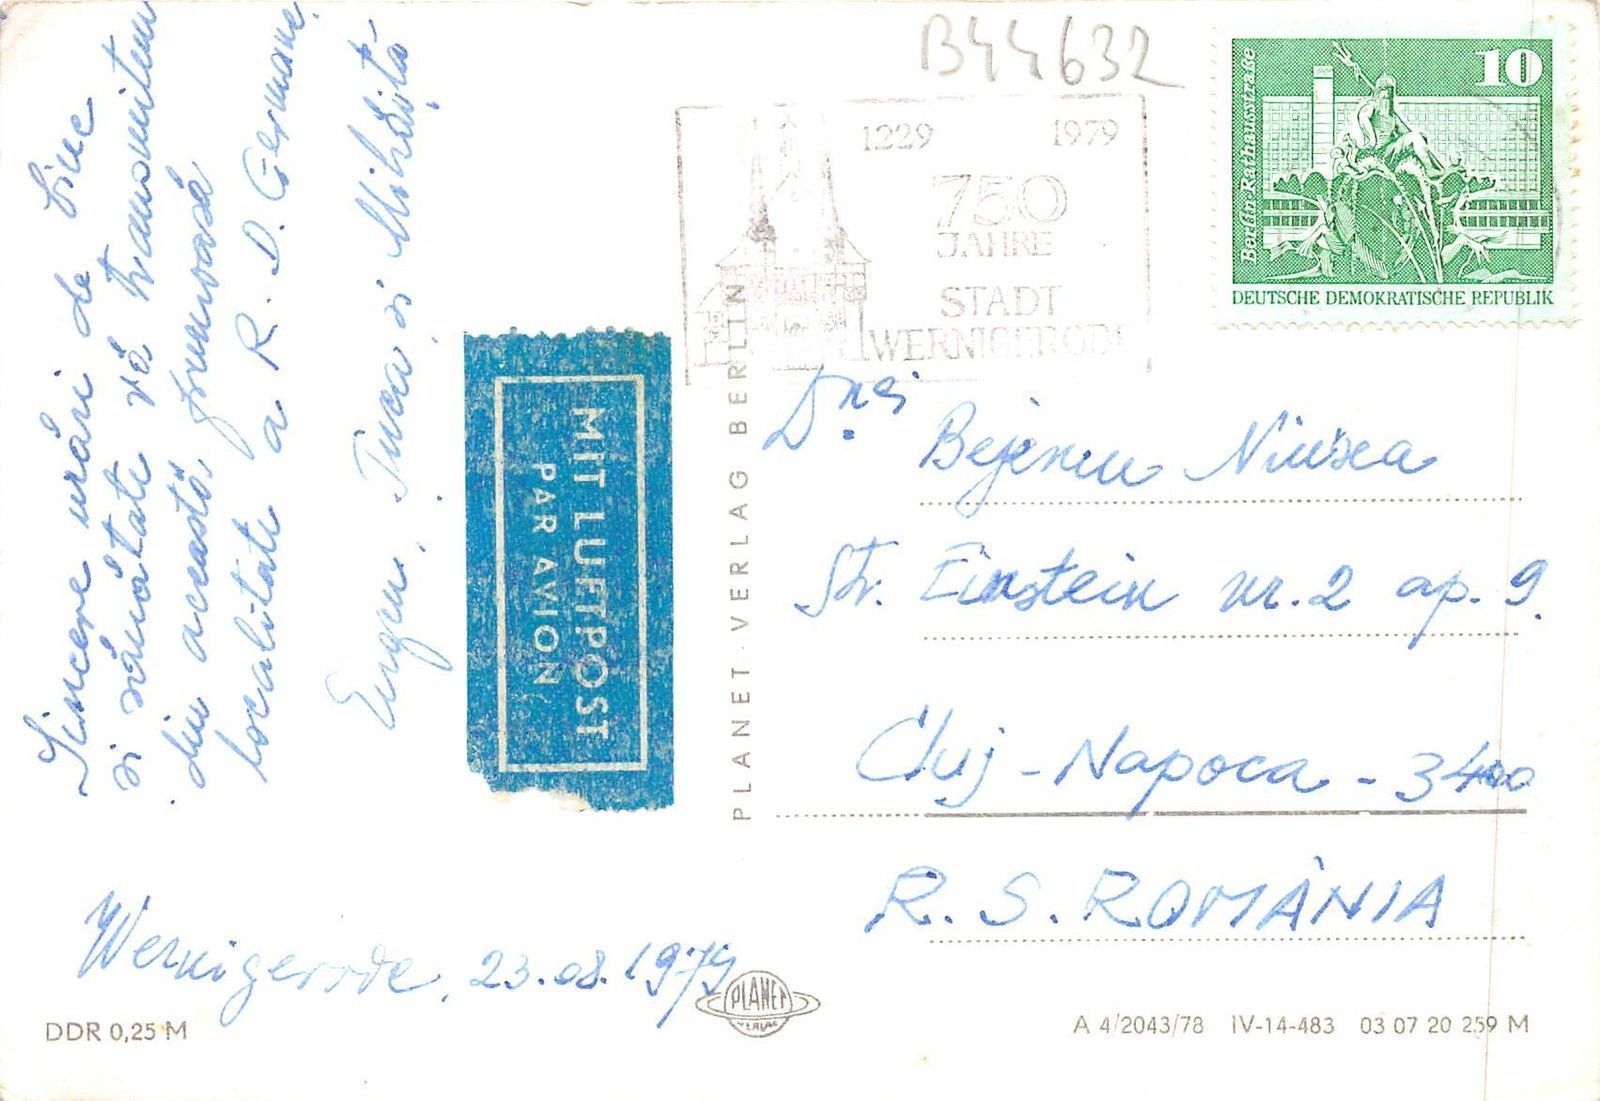 Sincere urări de bine
și sănătate vă transmitem
din această frumoasă
localitate a R. D. Germane.
Eugen, Tuca și Mihăiță
Wernigerode, 23.08.1979
DDR 0,25 M
MIT LUFTPOST
PAR AVION
PLANET · VERLAG BERLIN
PLANET
VERLAG
B44632
1229 1979
750
JAHRE
STADT
WERNIGERODE
10
Berlin, Rathausstraße
DEUTSCHE DEMOKRATISCHE REPUBLIK
Dnei
Bejenou Niusea
Str. Einstein nr. 2 ap. 9.
Cluj - Napoca - 3400
R. S. ROMÂNIA
A 4/2043/78 IV-14-483 03 07 20 259 M